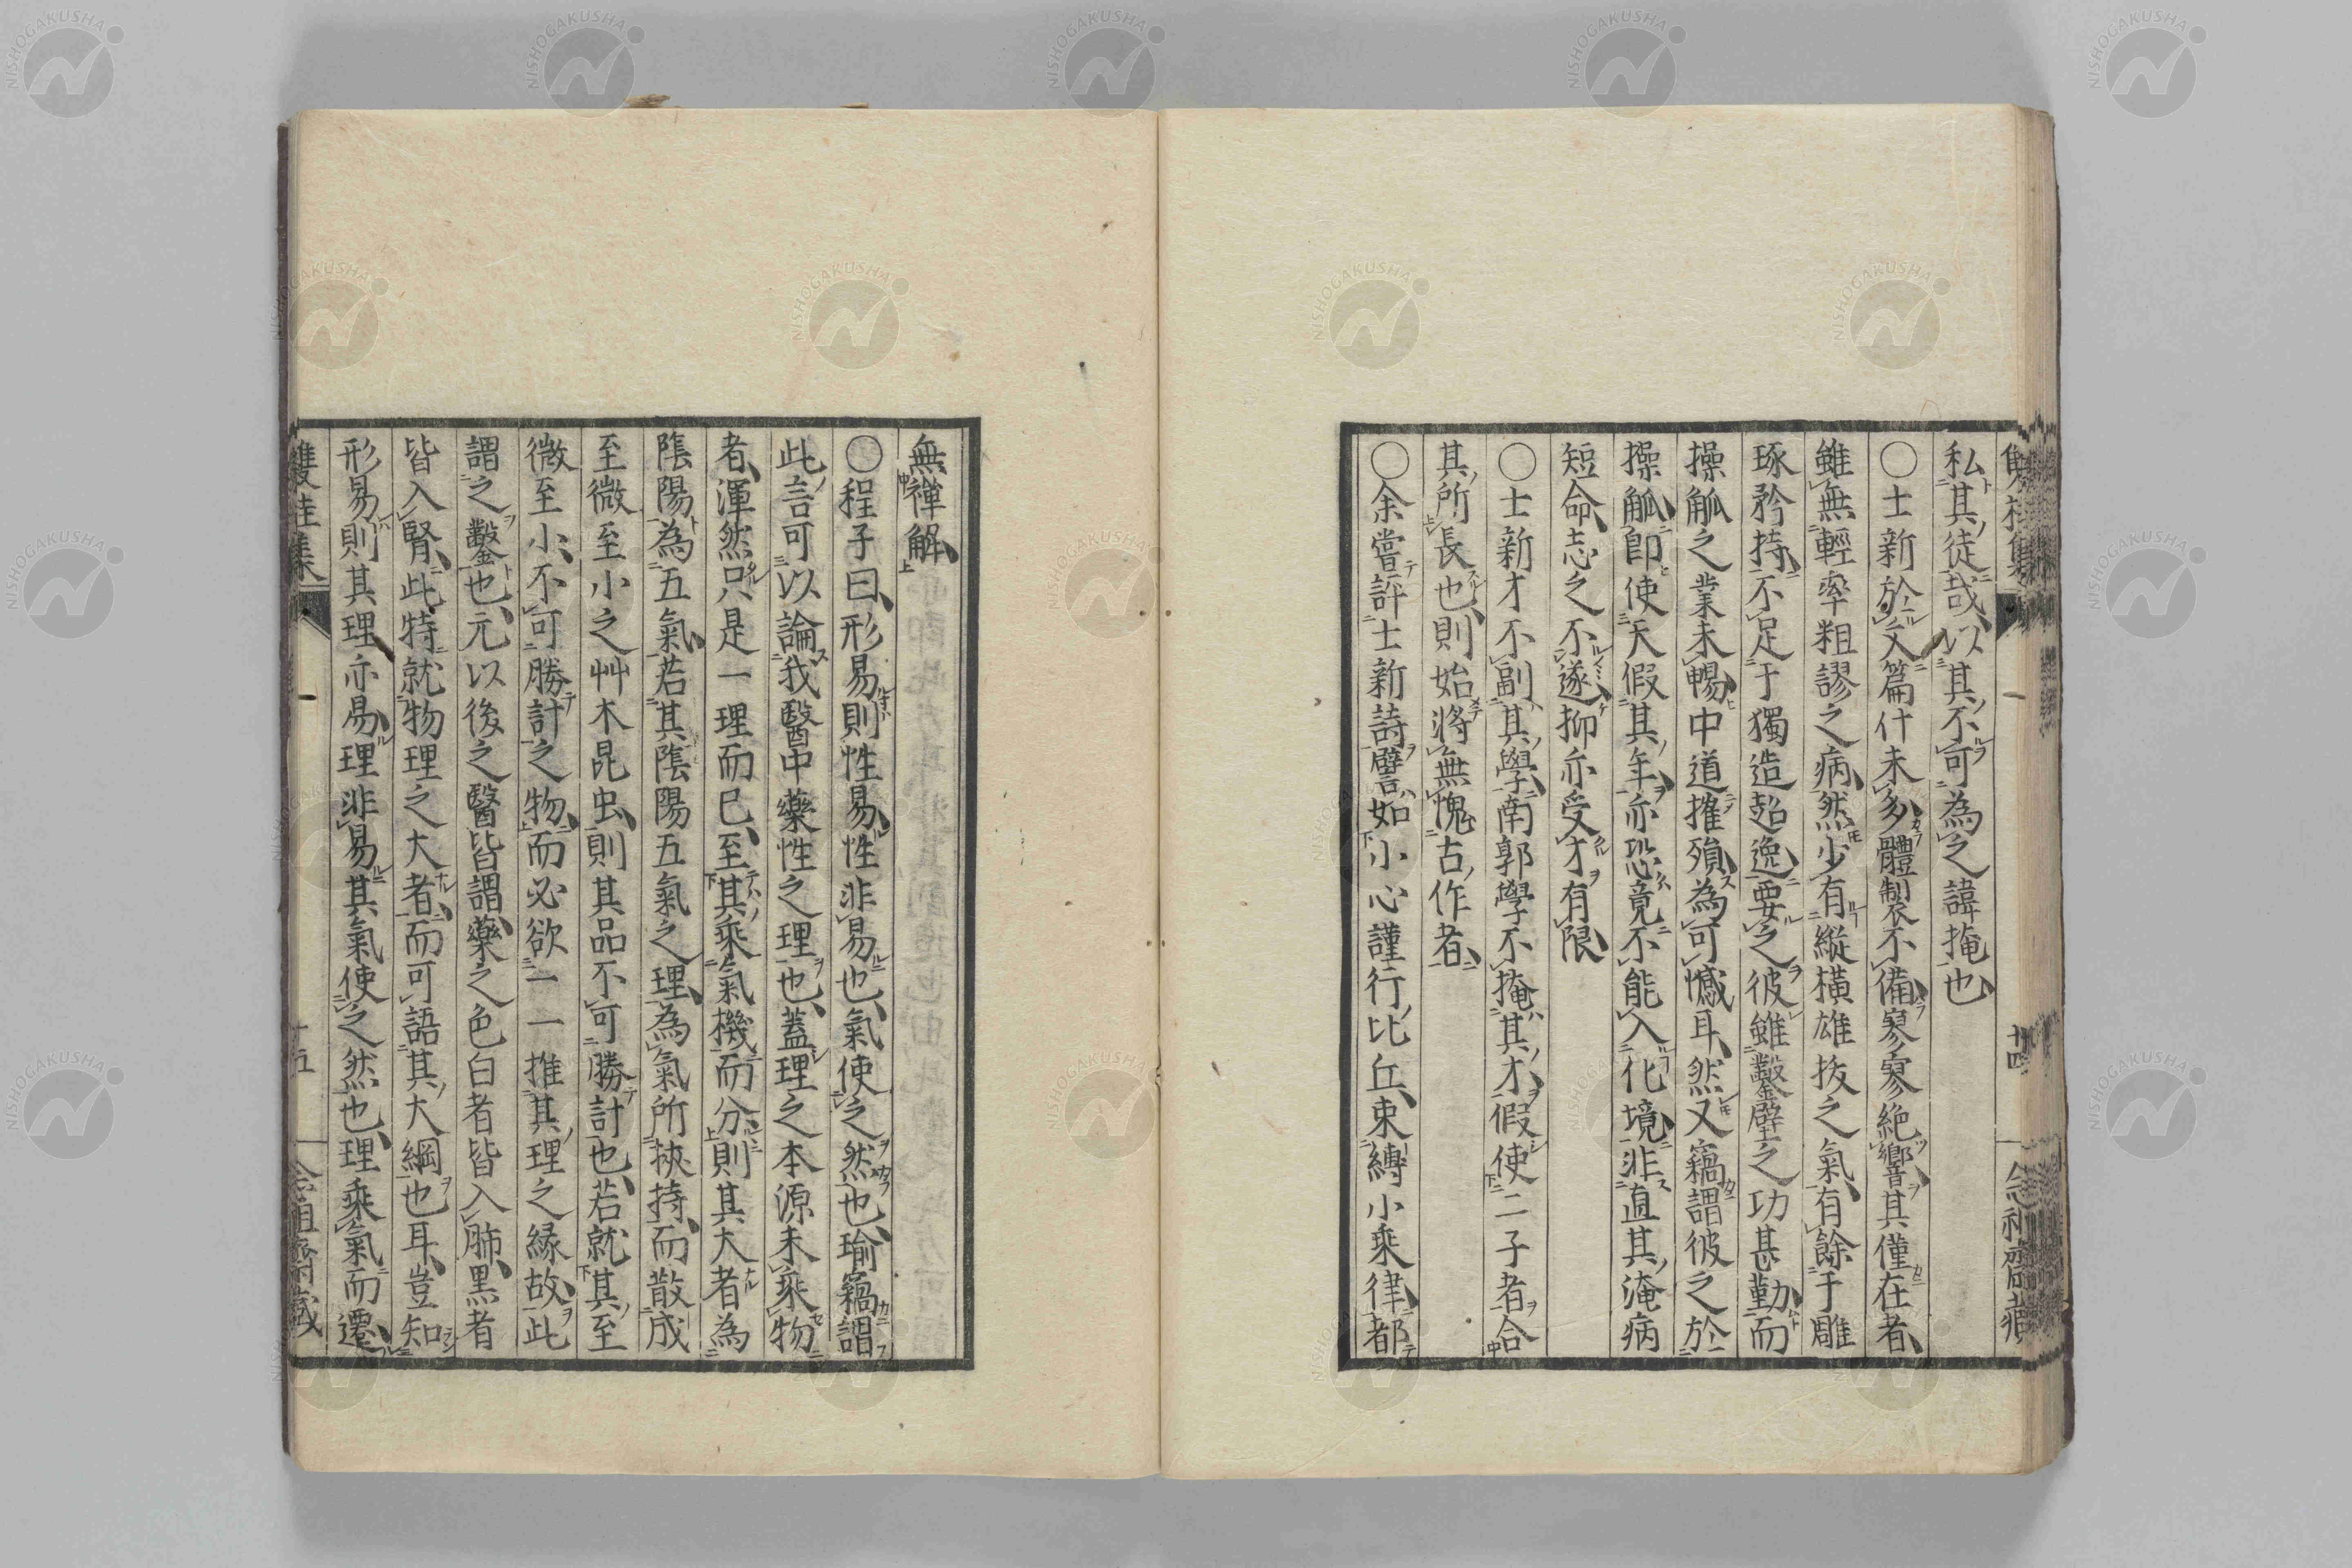 私其徒哉以其不可為之諱掩也
○士新於文篇什未多體製不備寥寥絶響其僅在者
雖無輕率粗謬之病然少有縱橫雄拔之氣有餘于雕
琢矜持不足于獨造超逸要之彼雖鑿壁之功甚勤而
操觚之業未暢中道摧殞為可憾耳然又竊謂彼之於
操觚即使天假其年亦恐竟不能入化境非直其淹病
短命志之不遂抑亦受才有限
○士新才不副其學南郭學不掩其才假使二子者合
其所長也則始將無愧古作者
○余嘗評士新詩譬如小心謹行比丘束縛小乘律都
無禪解
○程子曰形易則性易性非易也氣使之然也瑜竊謂
此言可以論我醫中藥性之理也蓋理之本源未乘物
者渾然只是一理而已至其乘氣機而分則其大者為
陰陽為五氣若其陰陽五氣之理為氣所挾持而散成
至微至小之艸木昆虫則其品不可勝計也若就其至
微至小不可勝計之物而必欲一一推其理之縁故此
謂之鑿也元以後之醫皆謂藥之色白者皆入肺黑者
皆入腎此特就物理之大者而可語其大綱也耳豈知
形易則其理亦易理非易其氣使之然也理乘氣而遷
雙桂集
十五